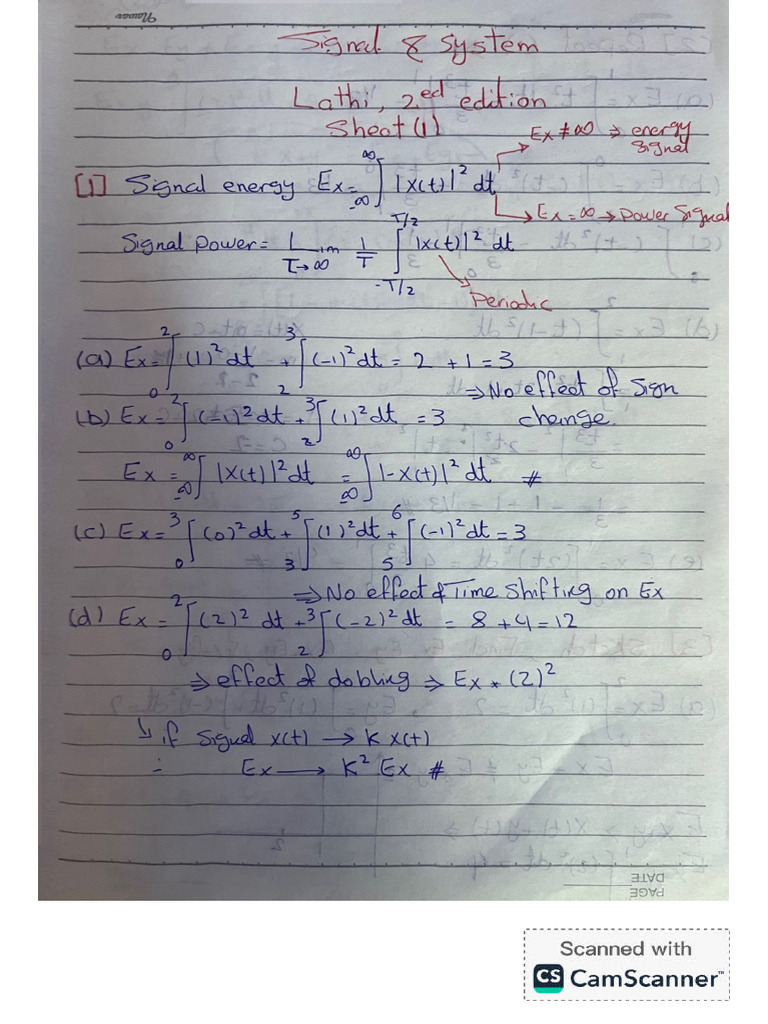 Signal & System
Lathi, 2ed edition
Sheet (1)
Ex ≠ ∞ ⇒ energy Signal
[1] Signal energy Ex = ∫_{-∞}^{∞} |x(t)|² dt
Ex = ∞ → Power Signal
Signal Power = Lim_{T→∞} 1/T ∫_{-T/2}^{T/2} |x(t)|² dt
Periodic
(a) Ex = ∫_0^2 (1)² dt + ∫_2^3 (-1)² dt = 2 + 1 = 3
⇒ No effect of Sign change.
(b) Ex = ∫_0^2 (-1)² dt + ∫_2^3 (1)² dt = 3
Ex = ∫_{-∞}^{∞} |x(t)|² dt = ∫_{-∞}^{∞} |-x(t)|² dt #
(c) Ex = ∫_0^3 (0)² dt + ∫_3^5 (1)² dt + ∫_5^6 (-1)² dt = 3
⇒ No effect of Time Shifting on Ex
(d) Ex = ∫_0^2 (2)² dt + ∫_2^3 (-2)² dt = 8 + 4 = 12
⇒ effect of dobling ⇒ Ex * (2)²
↳ if Signal x(t) → K x(t)
∴ Ex → K² Ex #
DATE
PAGE
Scanned with
CS CamScanner™